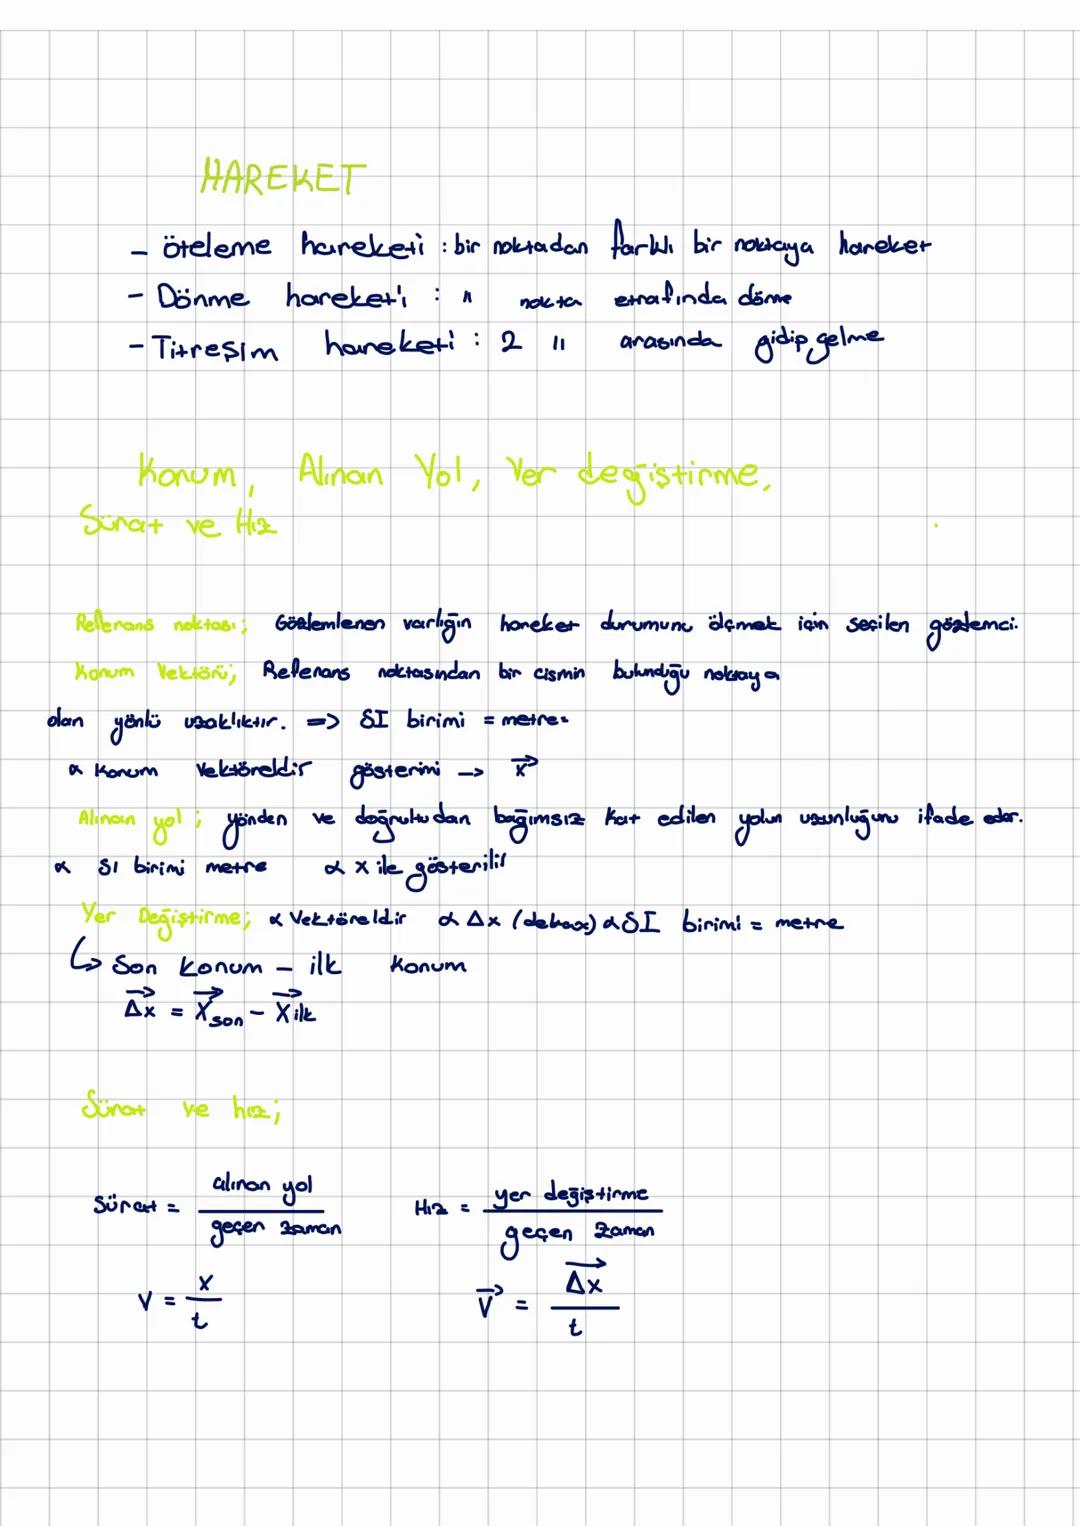 HAREKET
- öteleme hareketi : bir noktadan farklı bir noktaya hareket
- Dönme hareketi : " nokta etrafında döme
- Titreşim hareketi : 2 " arasında gidip gelme
Konum, Alınan Yol, Yer değiştirme,
Sürat ve Hız
Referans noktası; Gözlemlenen varlığın hareket durumunu ölçmek için seçilen gözlemci.
Konum Vektörü; Referans noktasından bir cismin bulunduğu noktaya
olan yönlü uzaklıktır. => SI birimi = metre
α Konum Vektöreldir gösterimi → x⃗
Alınan yol; yönden ve doğrultudan bağımsız kat edilen yolun uzunluğunu ifade eder.
α SI birimi metre α x ile gösterilir
Yer Değiştirme; α Vektöreldir α Δx (deltax) α SI birimi = metre
↳ Son konum - ilk konum
Δx⃗ = X⃗son - X⃗ilk
Sürat ve hız;
Sürat = alınan yol / geçen zaman Hız = yer değiştirme / geçen zaman
V = x / t V⃗ = Δx⃗ / t